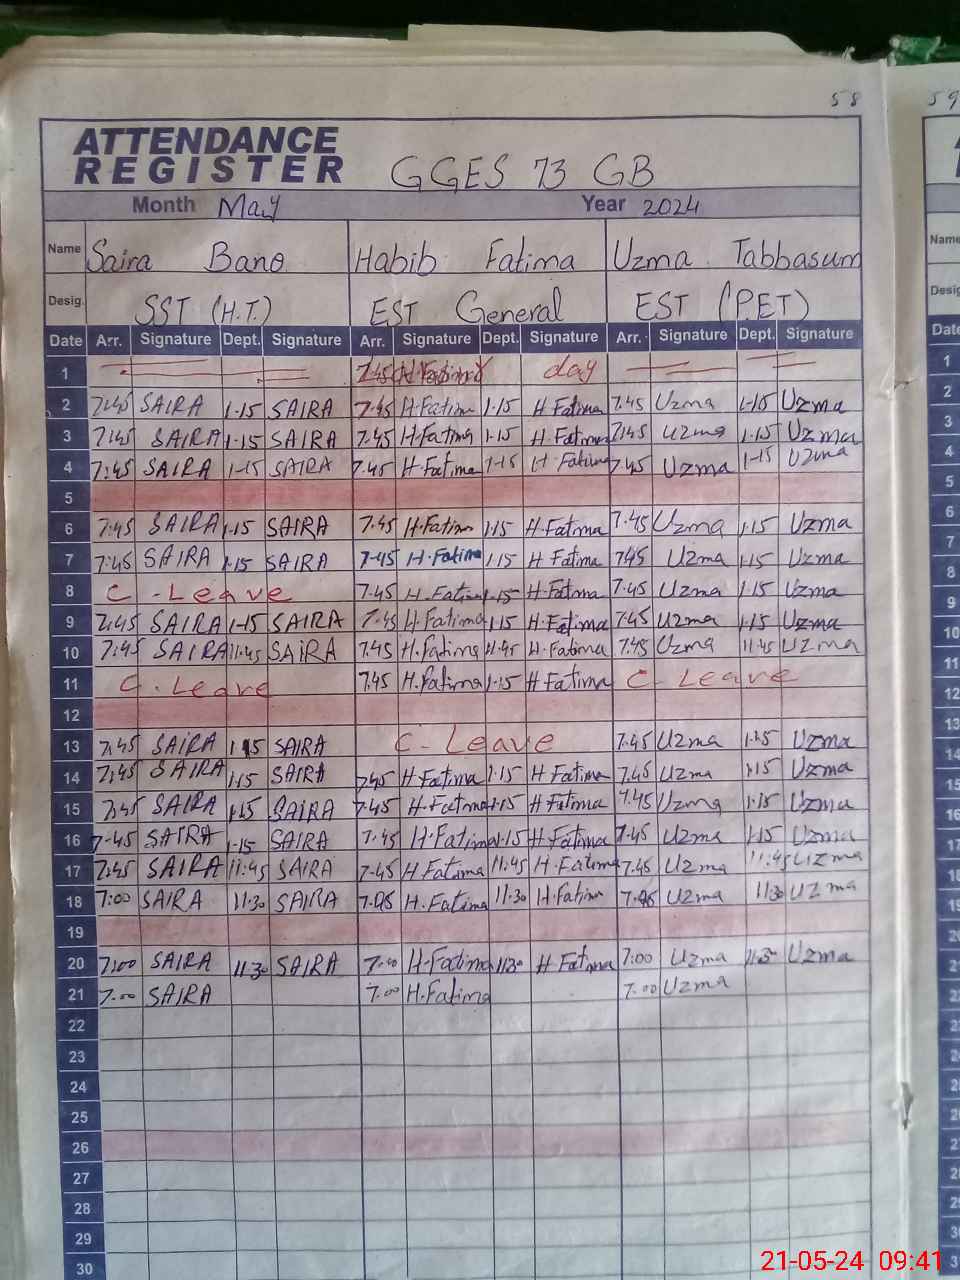 58
59
ATTENDANCE
REGISTER GGES 73 GB
Month May Year 2024
Name Saira Bano Habib Fatima Uzma Tabbasum Name
Desig. SST (H.T.) EST General EST (P.ET) Desig
Date Arr. Signature Dept. Signature Arr. Signature Dept. Signature Arr. Signature Dept. Signature Date
1 7.45 day 1
2 7:45 SAIRA 1-15 SAIRA 7.45 H.Fatima 1-15 H Fatima 7.45 Uzma 1-15 Uzma 2
3 7:45 SAIRA 1-15 SAIRA 7.45 H.Fatima 1.15 H.Fatima 7.45 Uzma 1.15 Uzma 3
4 7:45 SAIRA 1-15 SAIRA 7.45 H.Fatima 1-15 H.Fatima 7.45 Uzma 1-15 Uzma 4
5 5
6 7:45 SAIRA 1.15 SAIRA 7.45 H.Fatima 1.15 H.Fatima 7.45 Uzma 1.15 Uzma 6
7 7:45 SAIRA 1.15 SAIRA 7-45 H.Fatima 1.15 H Fatima 7.45 Uzma 1.15 Uzma 7
8 C - Leave 7.45 H.Fatima 1-15 H.Fatima 7.45 Uzma 1.15 Uzma 8
9 7:45 SAIRA 1-15 SAIRA 7.45 H.Fatima 1.15 H.Fatima 7.45 Uzma 1.15 Uzma 9
10 7:45 SAIRA 11:45 SAIRA 7.45 H.Fatima 11.45 H.Fatima 7.45 Uzma 11.45 Uzma 10
11 C - Leave 7.45 H.Fatima 1-15 H Fatima C Leave 11
12 12
13 7:45 SAIRA 1.15 SAIRA C - Leave 7.45 Uzma 1.15 Uzma 13
14 7:45 SAIRA 1.15 SAIRA 7.45 H Fatima 1.15 H Fatima 7.45 Uzma 1.15 Uzma 14
15 7:45 SAIRA 1.15 SAIRA 7.45 H.Fatima 1-15 H Fatima 7.45 Uzma 1.15 Uzma 15
16 7-45 SAIRA 1-15 SAIRA 7.45 H.Fatima 1.15 H.Fatima 7.45 Uzma 1.15 Uzma
17 7:45 SAIRA 11:45 SAIRA 7.45 H Fatima 11.45 H.Fatima 7.45 Uzma 11:45 Uzma 17
18 7:00 SAIRA 11.30 SAIRA H.Fatima 11.30 H.Fatima Uzma 11.30 Uzma 18
19 19
20 7:00 SAIRA 11 30 SAIRA H.Fatima 1130 H Fatima 7:00 Uzma 11.30 Uzma 20
21 7.00 SAIRA 7.00 H.Fatima 7.00 Uzma
22
23
24
25
26
27
28
29
30
21-05-24 09:41